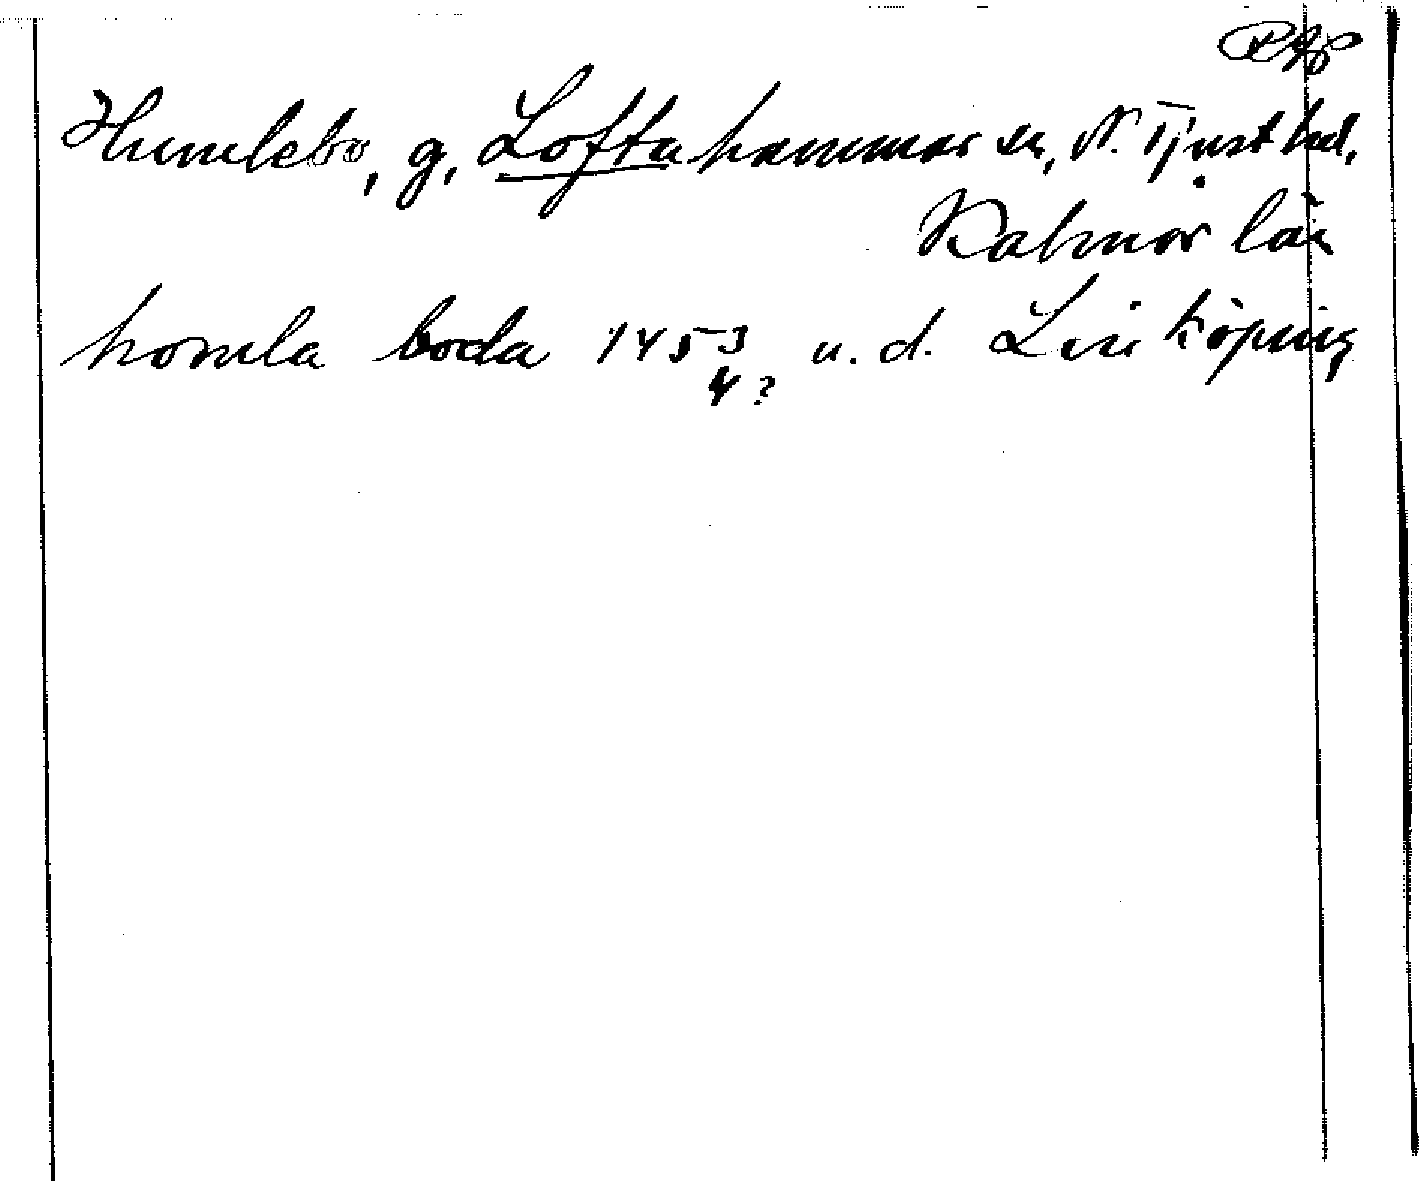 RAp
Humlebo, g, Loftahammar sn, N. Tjust hd,
Kalmar län
homla boda 1453 u. d. Linköping
4?